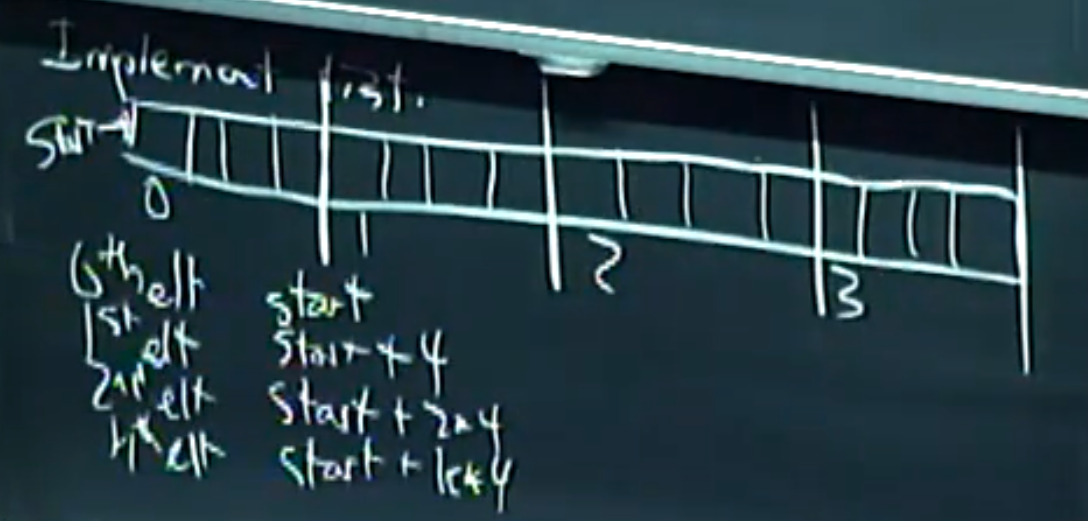 Implement list.
Start→
0 1 2 3
0th elt start
1st elt start + 4
2nd elt start + 2*4
kth elt start + k*4